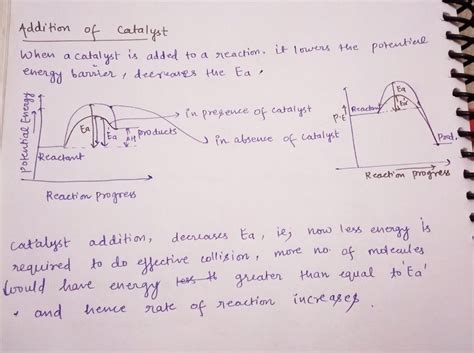 Addition of Catalyst
When a catalyst is added to a reaction. it lowers the potential
energy barrier, decreases the Ea.
Potential Energy
Ea
Ea
ΔH
Reactant
products
in presence of catalyst
in absence of catalyst
Reaction progress
P.E
Reactant
Ea
Ea'
Prod.
Reaction progress
Catalyst addition, decreases Ea, ie; now less energy is
required to do effective collision, more no. of molecules
would have energy less th greater than equal to 'Ea'
and hence rate of reaction increases.